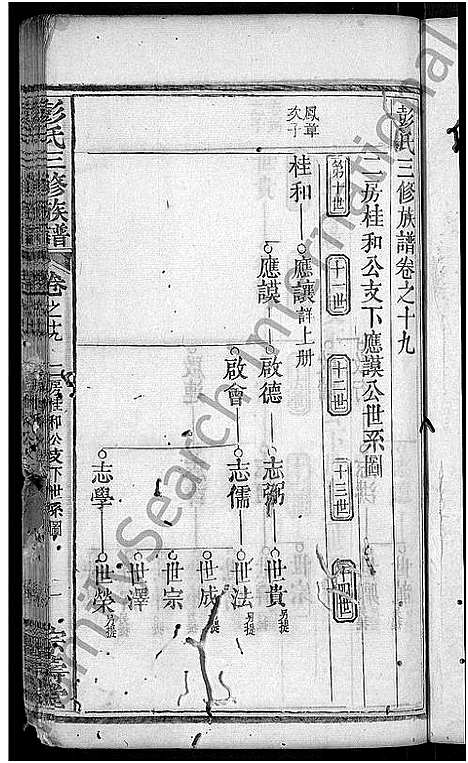 彭氏三修族譜卷之十九
二房桂和公支下應謨公世系圖
第十世
十一世
十二世
十三世
十四世
鳳章
次子
桂和
應讓 詳上册
應謨
啟德
志弼
世貴 另提
啟會
志儒
世法 另提
世成 另提
世宗
世澤
志學
世榮 另提
彭氏三修族譜
卷之十九
二房桂和公支下世系圖
一
FamilySearch International